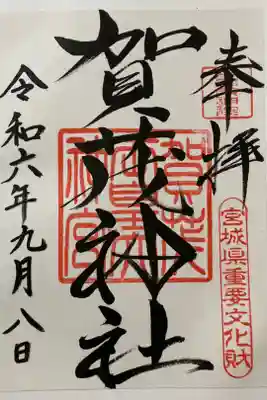 奉拝
宮城県重要文化財
賀茂神社
令和六年九月八日